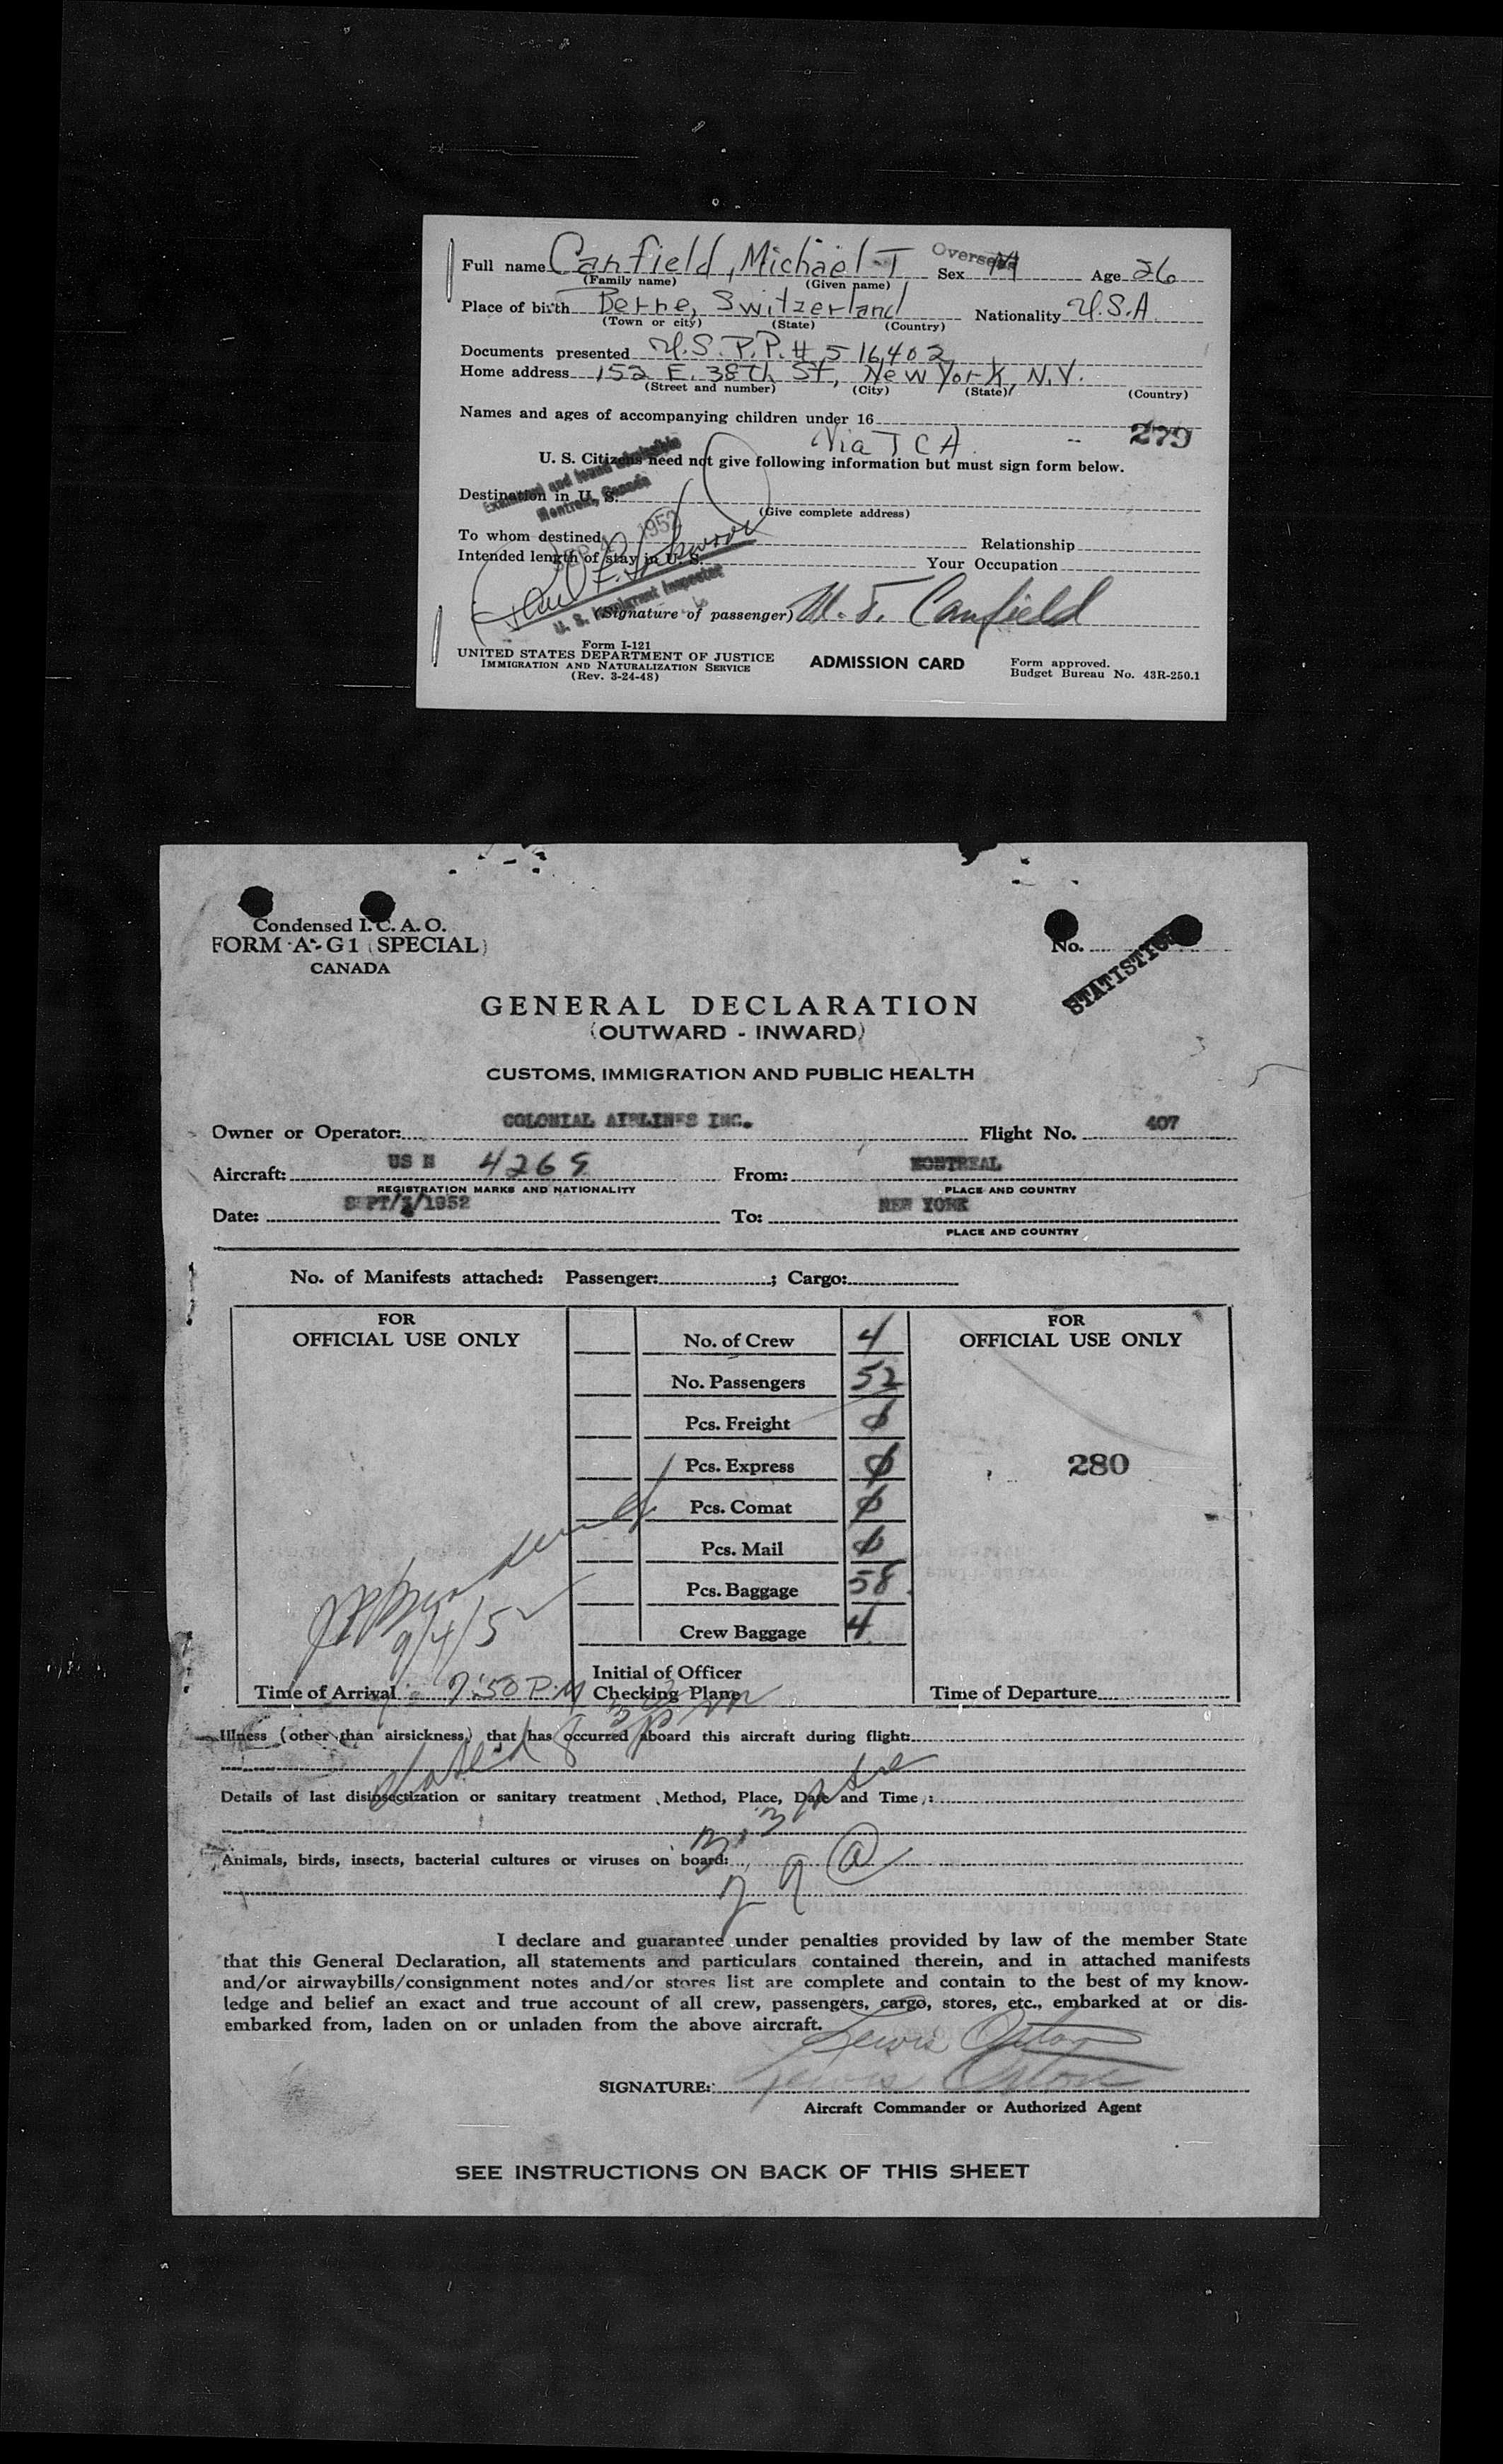 Full name Canfield, Michael T Overseas Sex M Age 26
(Family name) (Given name)
Place of birth Berne, Switzerland Nationality U.S.A.
(Town or city) (State) (Country)
Documents presented U.S. P.P. # 516,402
Home address 152 E. 38th St, New York, N.Y.
(Street and number) (City) (State) (Country)
Names and ages of accompanying children under 16
Via TCA 279
U. S. Citizens need not give following information but must sign form below.
Examined and found admissible
Montreal, Canada
Destination in U. S.
(Give complete address)
1952
To whom destined Relationship
Intended length of stay in U. S. Your Occupation
U. S. Immigrant Inspector
(Signature of passenger) M. T. Canfield
Form I-121
UNITED STATES DEPARTMENT OF JUSTICE
IMMIGRATION AND NATURALIZATION SERVICE
(Rev. 3-24-48)
ADMISSION CARD
Form approved.
Budget Bureau No. 43R-250.1
Condensed I.C.A.O.
FORM "A"-G1 (SPECIAL)
CANADA
No.
STATISTICS
GENERAL DECLARATION
(OUTWARD - INWARD)
CUSTOMS, IMMIGRATION AND PUBLIC HEALTH
Owner or Operator: COLONIAL AIRLINES INC. Flight No. 407
Aircraft: US N From: MONTREAL
REGISTRATION MARKS AND NATIONALITY PLACE AND COUNTRY
Date: SEPT/ /1952 To: NEW YORK
PLACE AND COUNTRY
No. of Manifests attached: Passenger: ; Cargo:
FOR
OFFICIAL USE ONLY
No. of Crew 4
No. Passengers 52
Pcs. Freight 0
Pcs. Express 0
Pcs. Comat 0
Pcs. Mail 0
Pcs. Baggage 58
Crew Baggage 4
FOR
OFFICIAL USE ONLY
280
9/4/52
Time of Arrival 7:50 P.M
Initial of Officer
Checking Plane
Time of Departure
Illness (other than airsickness) that has occurred aboard this aircraft during flight:
Details of last disinsectization or sanitary treatment (Method, Place, Date and Time):
Animals, birds, insects, bacterial cultures or viruses on board:
I declare and guarantee under penalties provided by law of the member State
that this General Declaration, all statements and particulars contained therein, and in attached manifests
and/or airwaybills/consignment notes and/or stores list are complete and contain to the best of my know-
ledge and belief an exact and true account of all crew, passengers, cargo, stores, etc., embarked at or dis-
embarked from, laden on or unladen from the above aircraft.
Lewis
SIGNATURE: Lewis
Aircraft Commander or Authorized Agent
SEE INSTRUCTIONS ON BACK OF THIS SHEET